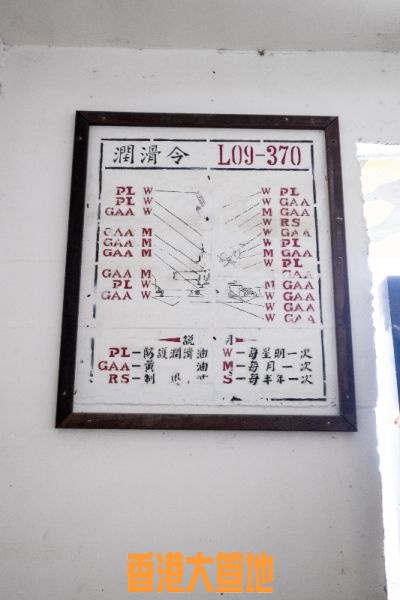 潤滑令 L09-370
PL W
PL W
GAA W
GAA M
GAA M
GAA M
GAA M
PL W
GAA W
W PL
W GAA
M GAA
W RS
W GAA
W PL
M GAA
W PL
GAA
W GAA
M GAA
W GAA
W GAA
說 明
PL—防護潤滑油 W—每星期一次
GAA—黃 油 M—每月一次
RS—制 退 S—每半年一次
香港大笪地